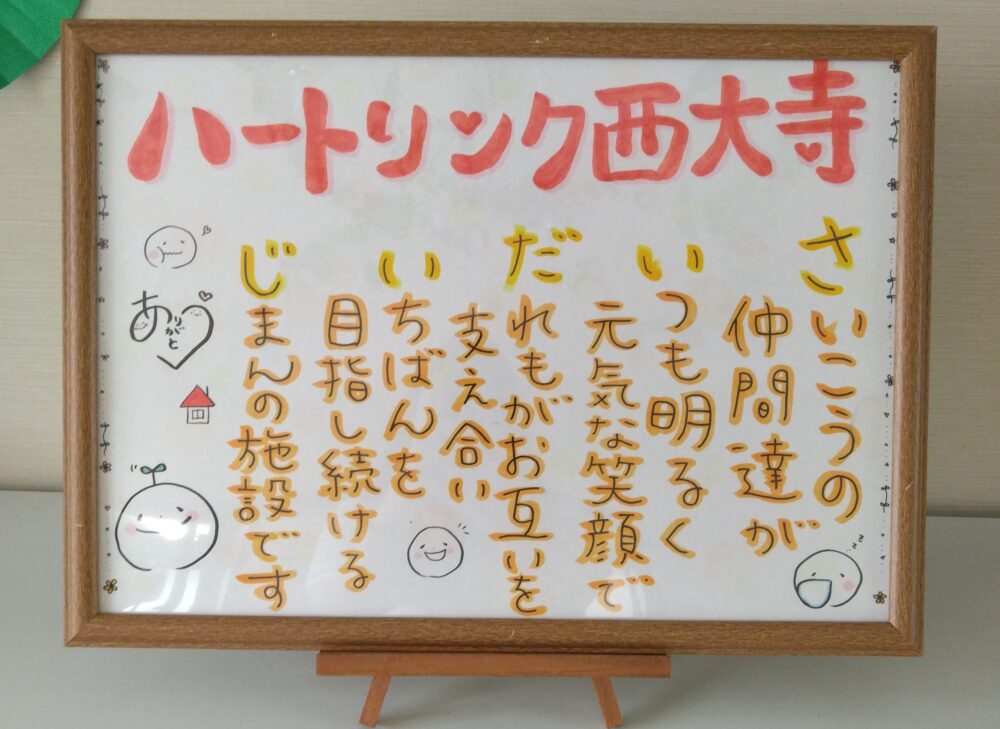 ハートリンク西大寺
さいこうの
仲間達が
いつも明るく
元気な笑顔で
だれもがお互いを
支え合い
いちばんを
目指し続ける
じまんの施設です
ありがと
zzz